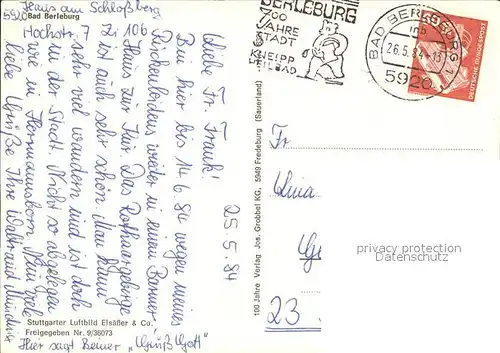 Haus am Schloßberg
5920
Bad Berleburg
Hochstr. 7 Zi 106
25.5.84
Liebe Fr. Frank!
Bin hier bis 14.6.84 wegen meines
wieder in einem
Haus zur Kur. Das Rothaargebirge
ist auch sehr schön. Man kann
sehr viel wandern und ist doch
in der Stadt. Nicht so abgelegen
wie in Hermannsborn. Nun viele
liebe Grüße Ihre
Hier sagt keiner „Grüß Gott"
Stuttgarter Luftbild Elsäßer & Co.
Freigegeben Nr. 9/36073
100 Jahre Verlag Jos. Grobbel KG, 5949 Fredeburg (Sauerland)
BERLEBURG
700
JAHRE
STADT
KNEIPP
HEILBAD
BAD BERLEBURG 1
mb
26.5.84-13
5920
DEUTSCHE BUNDESPOST
Fr
23
privacy protection
Datenschutz